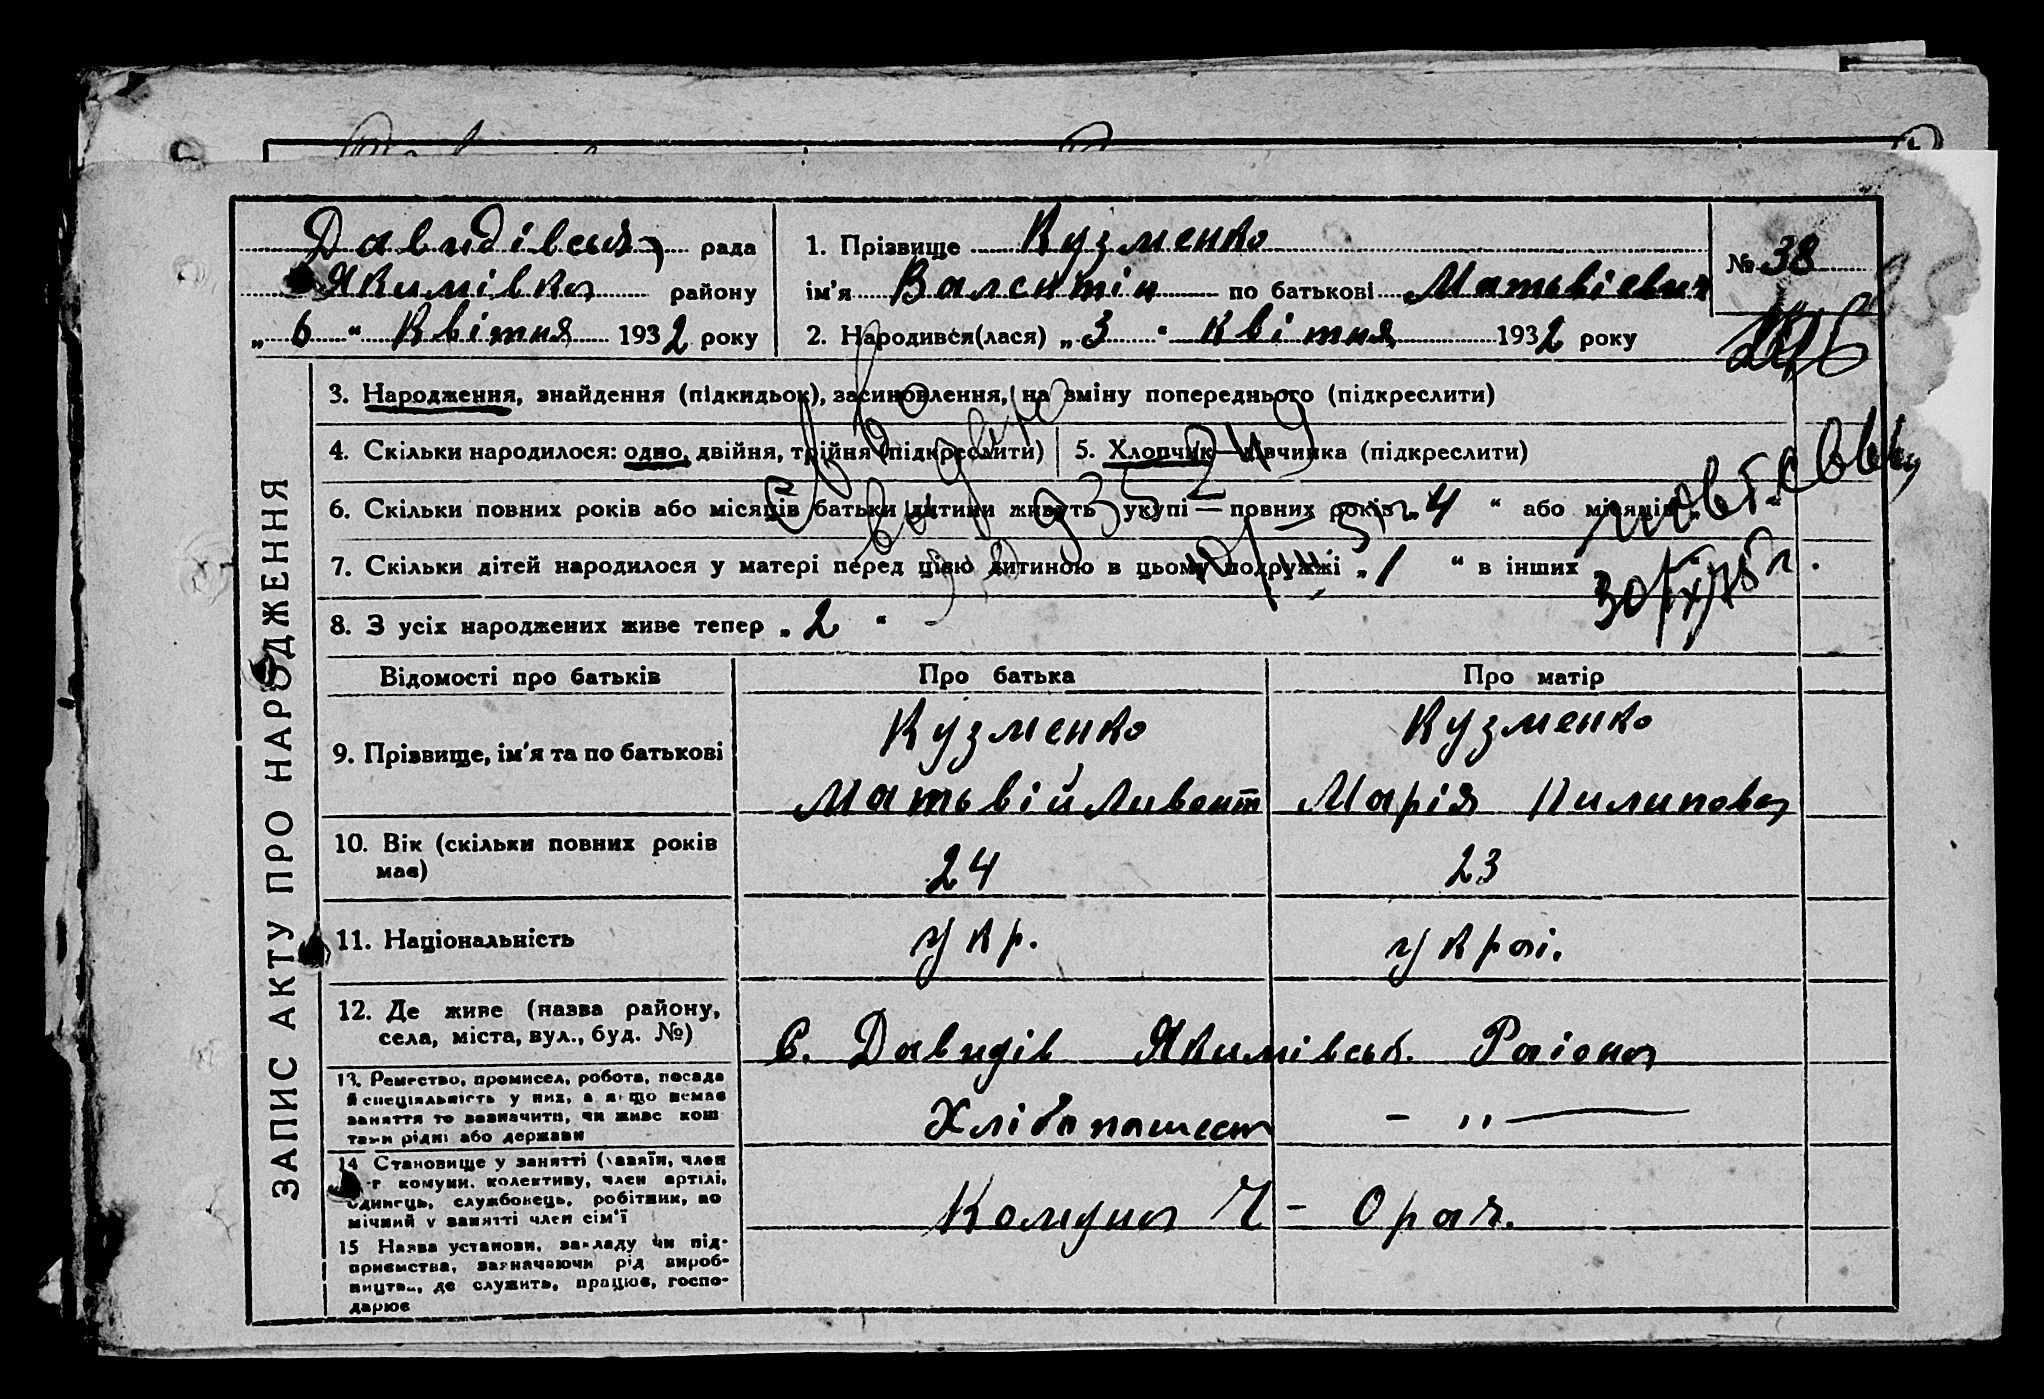 Давидівська рада
Якимівка району
„ 6 “ Квітня 1932 року
1. Прізвище Кузменко
ім'я Валентін по батькові Матьвієвич
2. Народився(лася) „ 3 “ Квітня 1932 року
№ 38
3. Народження, знайдення (підкидьок), засиновлення, на зміну попереднього (підкреслити)
4. Скільки народилося: одно, двійня, трійня (підкреслити)
5. Хлопчик — дівчинка (підкреслити)
6. Скільки повних років або місяців батьки дитини живуть укупі — повних років „ 4 “ або місяців
7. Скільки дітей народилося у матері перед цією дитиною в цьому подружжі „ 1 “ в інших
8. З усіх народжених живе тепер „ 2 “
ЗАПИС АКТУ ПРО НАРОДЖЕННЯ
Відомості про батьків
Про батька
Про матір
9. Прізвище, ім'я та по батькові
Кузменко
Матьвій
Кузменко
Марія Пилиповна
10. Вік (скільки повних років
має)
24
23
11. Національність
укр.
украі.
12. Де живе (назва району,
села, міста, вул., буд. №)
С. Давидів Якимівськ. Раіона
13. Ремество, промисел, робота, посада
й спеціяльність у них, а якщо немає
заняття то зазначити, чи живе кош
тами рідні або держави
Хлібопашест
— „ —
14 Становище у занятті (хазяїн, член
комуни, колективу, член артілі,
одинець, службовець, робітник, по
мічний у занятті член сім'ї
Комуна Ч - Орач.
15 Назва установи, закладу чи під-
приємства, зазначаючи рід вироб-
ництва, де служить, працює, госпо-
дарює